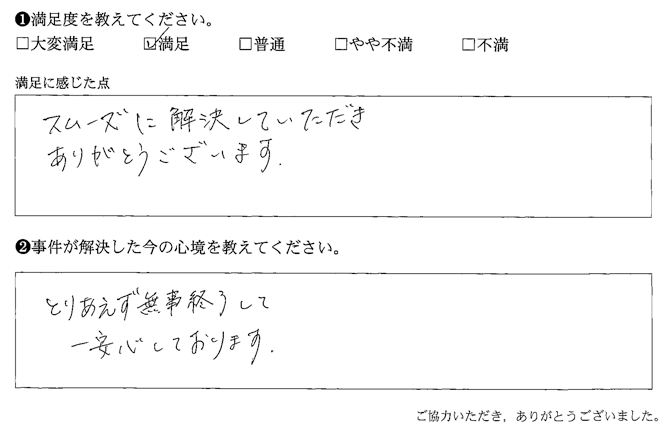 ❶満足度を教えてください。
□大変満足 ☑満足 □普通 □やや不満 □不満
満足に感じた点
スムーズに解決していただき
ありがとうございます.
❷事件が解決した今の心境を教えてください。
とりあえず無事終うして
一安心しております.
ご協力いただき,ありがとうございました。